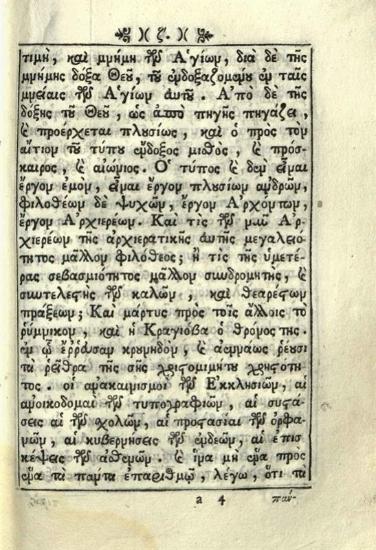 )( ζ. )(
τιμὴ, καὶ μνήμη τῶν Ἁγίων, διὰ δὲ τῆς
μνήμης δόξα Θεοῦ, τοῦ ἐνδοξαζομένου ἐν ταῖς
μνείαις τῶν Ἁγίων αὐτοῦ. Ἀπὸ δὲ τῆς
δόξης τοῦ Θεοῦ, ὡς ἀπὸ πηγῆς πηγάζει,
καὶ προέρχεται πλυσίως, καὶ ὁ πρὸς τὸν
αἴτιον τοῦ τύπου ἔνδοξος μισθὸς, καὶ πρόσ-
καιρος, καὶ αἰώνιος. Ὁ τύπος καὶ δὲν εἶναι
ἔργον ἐμὸν, εἶναι ἔργον πλυσίων ἀνδρῶν,
φιλοθέων δὲ ψυχῶν, ἔργον Ἀρχόντων,
ἔργον Ἀρχιερέων. Καὶ τίς τῶν νῦν Ἀρ-
χιερέων τῆς ἀρχιερατικῆς αὐτῆς μεγαλειό-
τητος μᾶλλον φιλόθεος; ἢ τίς τῆς ὑμετέ-
ρας σεβασμιότητος μᾶλλον συνδρομητὴς, καὶ
συντελεστὴς τῶν καλῶν, καὶ θεαρέστων
πράξεων; Καὶ μάρτυς πρὸς τοῖς ἄλλοις τὸ
ῥύμνικον, καὶ ἡ Κραγιόβα ὁ θρόνος της.
ἐν ᾧ ἔρρευσαν κρουνηδὸν, καὶ ἀεννάως ῥέουσι
τὰ ῥεῖθρα τῆς σῆς χριστομιμήτου χρηστότη-
τος. οἱ ἀνακαινισμοὶ τῶν Ἐκκλησιῶν, αἱ
ἀνοικοδομαὶ τῶν τυπογραφιῶν, αἱ συστά-
σεις αἱ τῶν σχολῶν, αἱ προστασίαι τῶν ὀρφα-
νῶν, αἱ κυβερνήσεις τῶν ἐνδεῶν, αἱ ἐπισ-
κέψεις τῶν ἀσθενῶν. καὶ ἵνα μὴ ἕνα πρὸς
ἕνα τὰ πάντα ἐπαριθμῶ, λέγω, ὅτι τὰ
a 4 πάν-